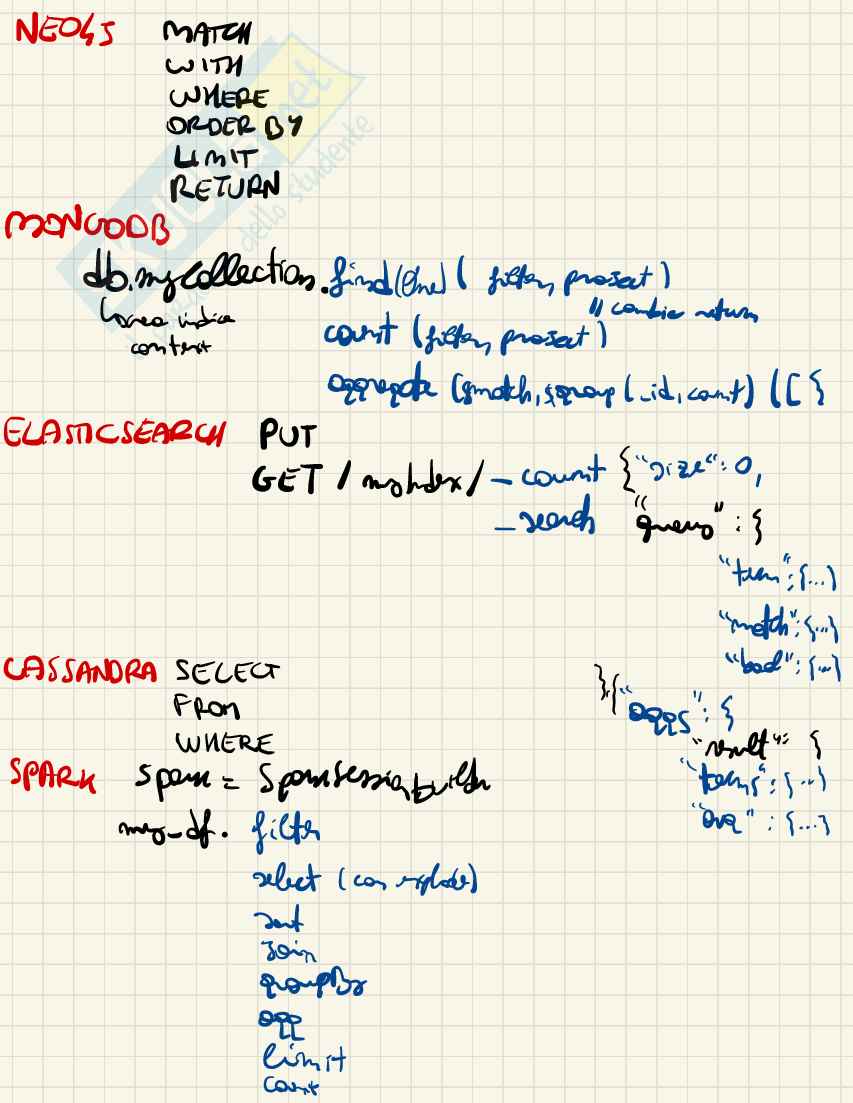 NEO4J MATCH
WITH
WHERE
ORDER BY
LIMIT
RETURN
MONGODB
db.myCollection.find(One) ( filter, project )
// cambia return
crea indice
content
count (filter, project)
aggregate ($match, $group (_id, count) ([ {
ELASTICSEARCH PUT
GET / myIndex / _count { "size": 0,
_search "query" : {
"term": {...}
"match": {...}
"bool": {...
CASSANDRA SELECT
} { "aggs": {
FROM
WHERE
"result": {
SPARK spark = SparkSession.builder
"terms": {...}
my_df. filter
"avg": {...}
select (con explode)
sort
join
groupBy
agg
limit
count
dello studente